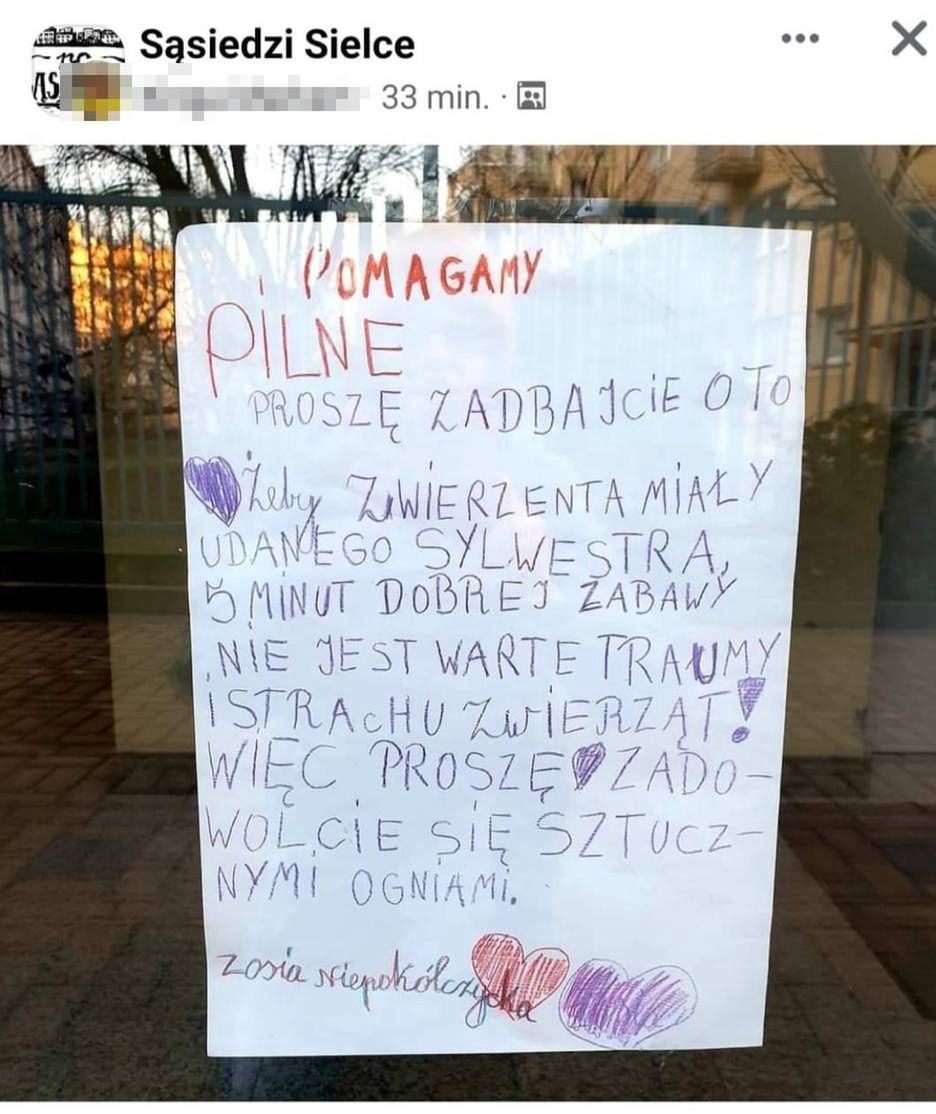 Sąsiedzi Sielce
33 min. ·
POMAGAMY
PILNE
PROSZĘ ZADBAJCIE O TO
Żeby ZWIERZENTA MIAŁY
UDANEGO SYLWESTRA,
5 MINUT DOBREJ ZABAWY
NIE JEST WARTE TRAUMY
I STRACHU ZWIERZĄT!
WIĘC PROSZĘ ZADO-
WOLCIE SIĘ SZTUCZ-
NYMI OGNIAMI.
Zosia Niepokólczycka